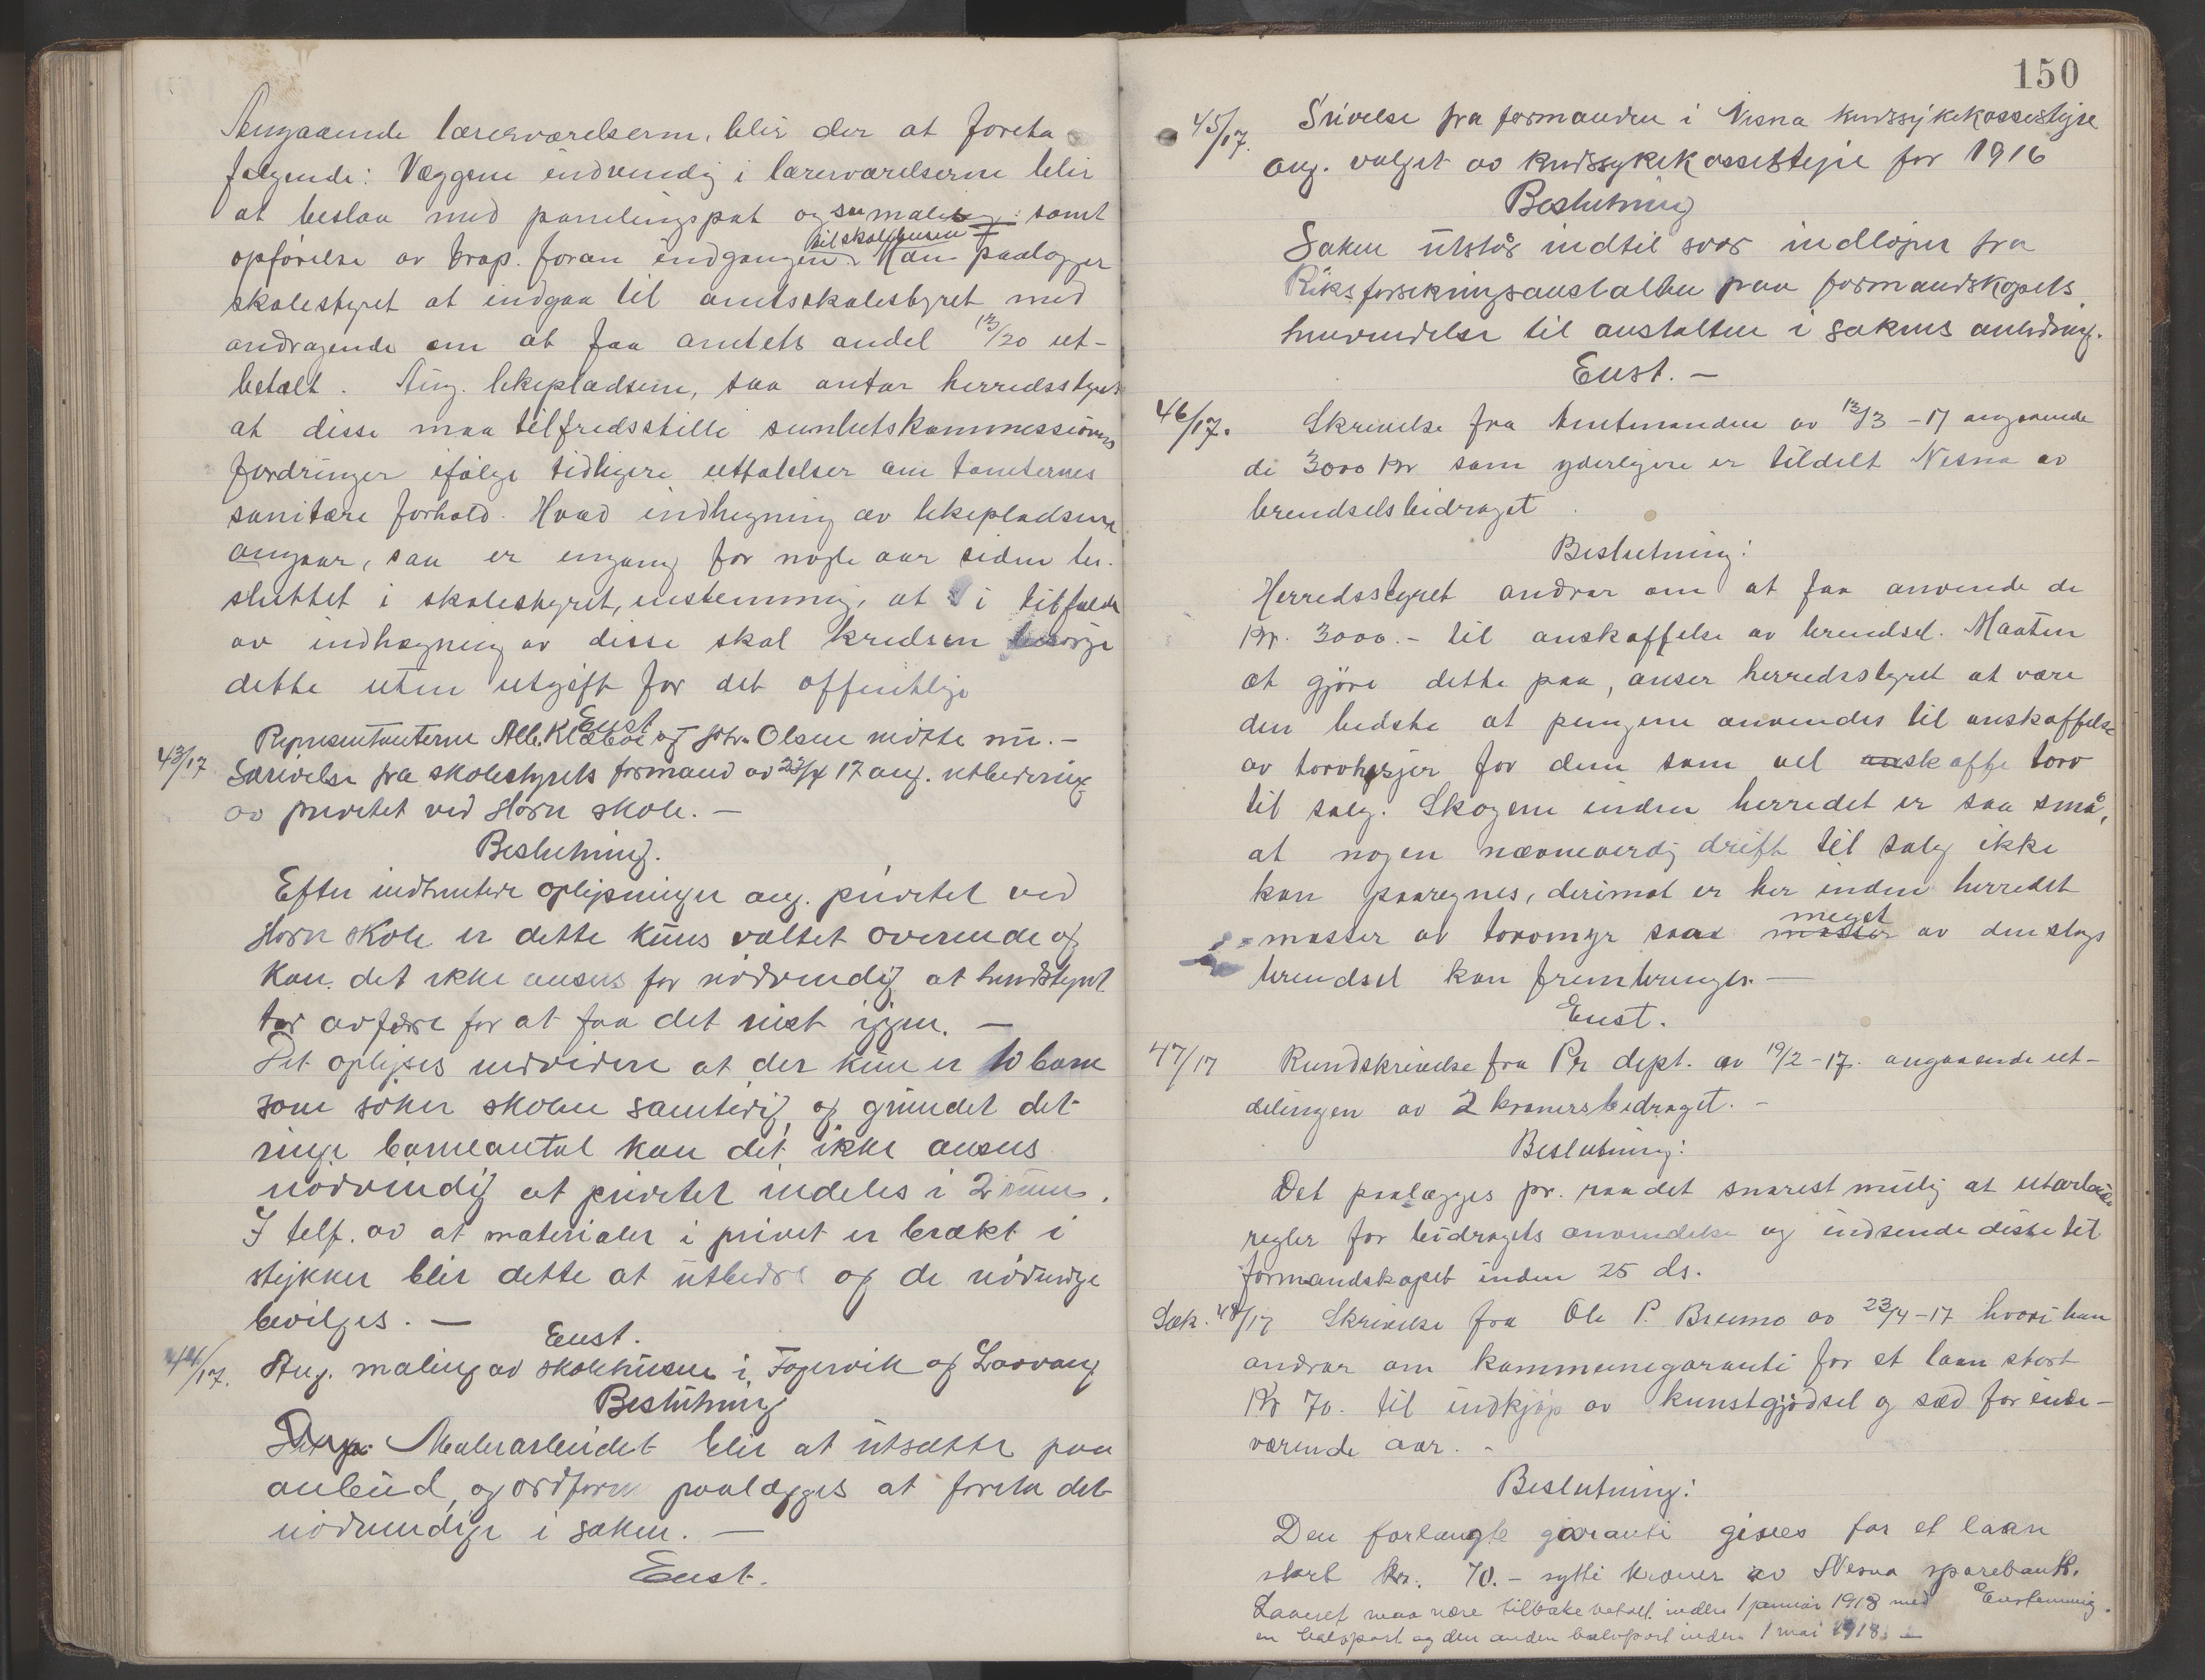 Angaaende læresværelserne, blir der at foreta
følgende: Væggene indvendig i læreværelserne blir
at beslaa med panelingspat og males samt
til skolehusene
opførelse av trap. foran indgangen. Man paalægger
skolestyret at indgaa til amtsskolestyret med
andragende om at faa amtets andel 13/20 ut-
betalt. Ang. lekepladsene, saa antar herredsstyret
at disse maa tilfredsstille sunhetskommissionens
fordringer ifølge tidligere uttalelser om tomternes
sanitære forhold. Hvad indhegning av lekepladsene
angaar, saa er engang for nogle aar siden be-
sluttet i skolestyret, enstemmig, at i tilfælde
av indhægning av disse skal kredsen besørge
dette uten utgift for det offentlige
Enst.
Representanterne Alb. Klæboe og John Olsen møtte nu. -
43/17 Skrivelse fra skolestyrets formand av 23/4 17 ang. utbedring
av privetet ved Horn skole. -
Beslutning.
Efter indhentede oplysninger ang. privetet ved
Horn skole er dette kuns væltet overende og
kan det ikke ansees for nødvendig at herredstyret
tar avfære for at faa det reist igjen. -
Det oplyses endvidere at der kun er 10 barn
som søker skolen samtidig, og grundet det
ringe barneantal kan det ikke ansees
nødvendig at privetet indeles i 2 rum.
I tilf. av at materialer i privet er brækt i
stykker blir dette at utbedre og de nødvendige
bevilges. -
Enst.
44/17. Ang. maling av skolehusene i Fagervik og Løvang
Beslutning
Malerarbeidet blir at utsætte paa
anbud, og ordføren paalægges at foreta det
nødvendige i saken. -
Enst.
150
45/17. Srivelse fra formanden i Nesna kredssykekassestyre
ang. valget av kredssykekassestyre for 1916
Beslutning
Saken utstår indtil svar indløper fra
Riksforsikringsanstalten paa formandskapets
henvendelse til anstalten i sakens anledning.
Enst. -
46/17. Skrivelse fra Amtmanden av 13/3 - 17 angaaende
de 3000 kr som yderligere er tildelt Nesna av
brendselsbidraget.
Beslutning:
Herredsstyret andrar om at faa anvende de
Kr. 3000.- til anskaffelse av brendsel. Maaten
at gjøre dette paa, anser herredsstyret at være
den bedste at pengene anvendes til anskaffelse
av torvhesjer for dem som vil anskaffe torv
til salg. Skogene inden herredet er saa små,
at nogen nævneverdig drift til salg ikke
kan paaregnes, derimot er her inden herredet
meget
masser av torvmyr saa masser av denslags
brendsel kan frembringes. -
Enst.
47/17 Rundskrivelse fra Pr dept. av 19/2 - 17. angaaende ut-
delingen av 2 kronersbidraget. -
Beslutning:
Det paalægges pr. raadet snarest mulig at utarbeide
regler for bidragets anvendelse og indsende disse til
formandskapet inden 25 ds.
Sak. 48/17 Skrivelse fra Ole P. Breimo av 23/4 - 17 hvori han
andrar om kommunegaranti for et laan stort
Kr 70. til indkjøp av kunstgjødsel og sæd for inde-
værende aar. -
Beslutning:
Den forlangte garanti gives for et laan
stort kr. 70.- sytti kroner av Nesna sparebank.
Laanet maa være tilbakebetalt inden 1 januar 1918 med Enstemmig.
en halvpart og den anden halvpart inden 1 mai 1918. -